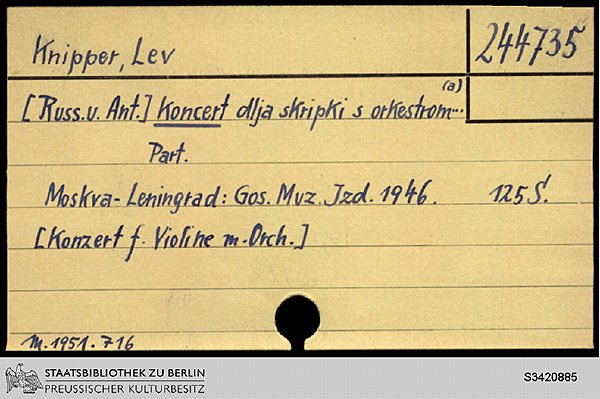 Knipper, Lev
244735
(a)
[Russ. u. Ant.] Koncert dlja skripki s orkestrom...
Part.
Moskva-Leningrad: Gos. Muz. Izd. 1946. 125 S.
[Konzert f. Violine m. Orch.]
M. 1951. 716
STAATSBIBLIOTHEK ZU BERLIN
PREUSSISCHER KULTURBESITZ
S3420885